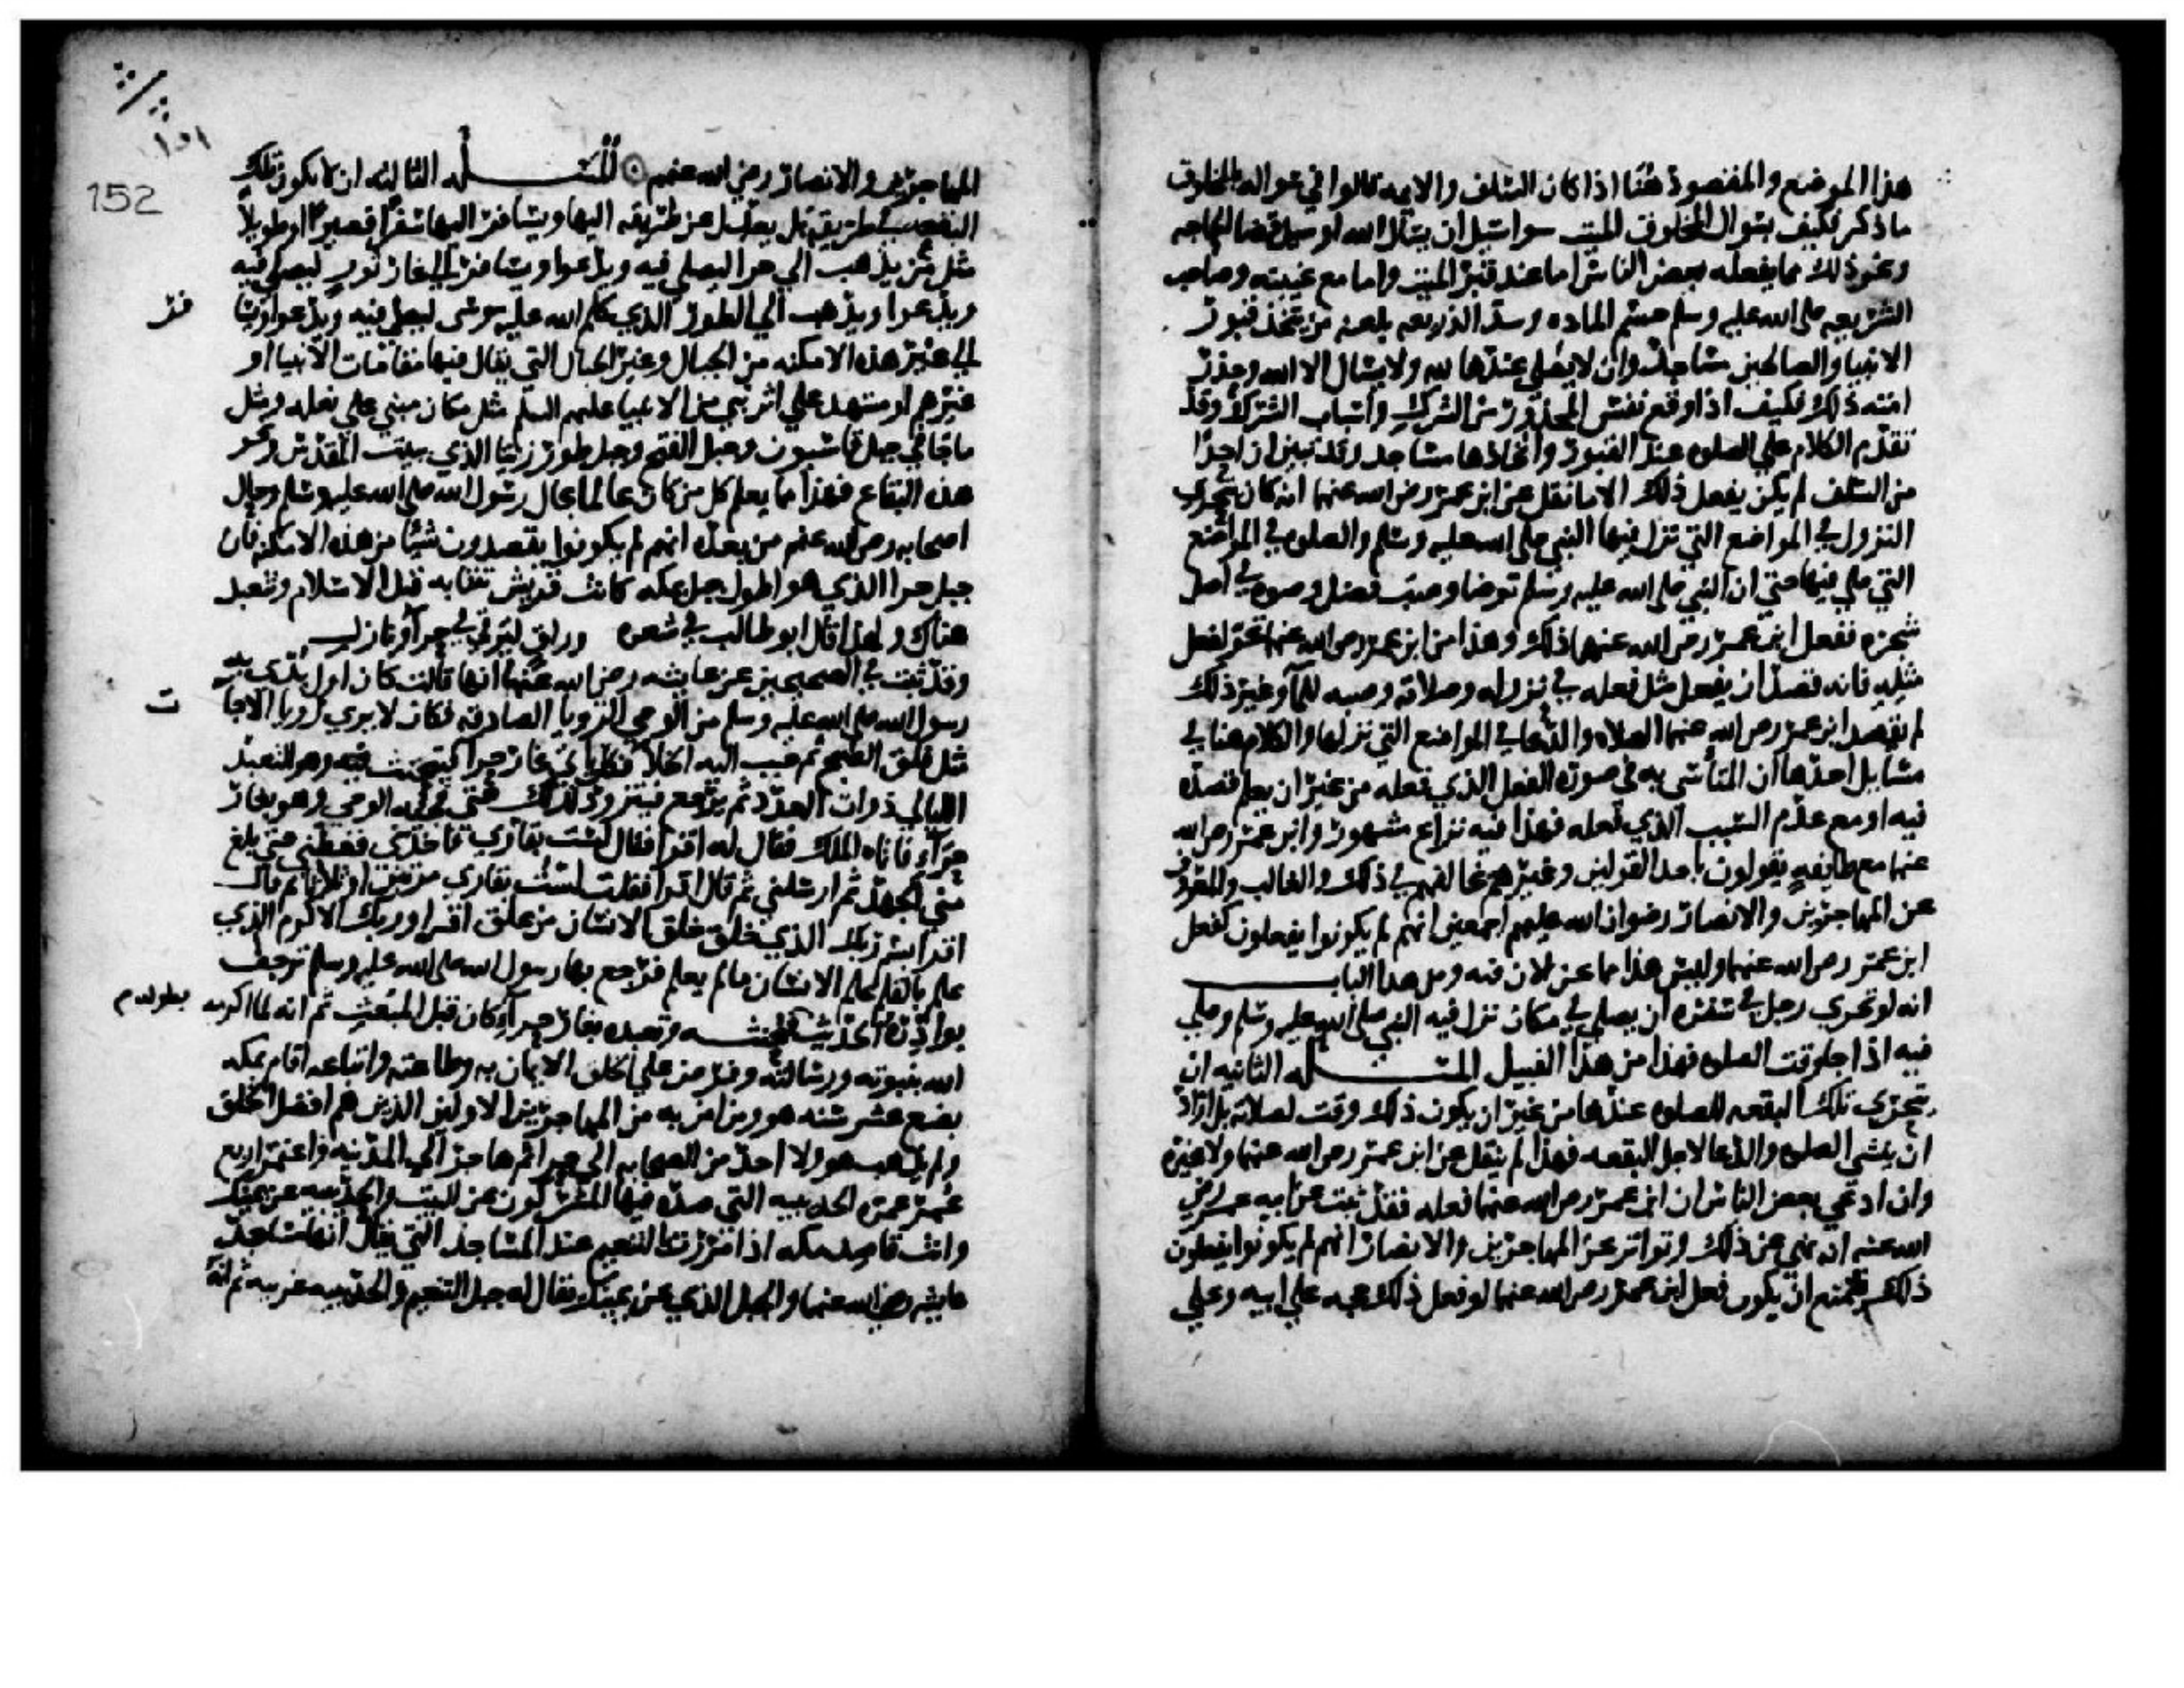 هذا الموضع والمقصود هنا اذا كان السلف والايمه قالوا في سواله بالمخلوق
ما ذكر فكيف بسوال المخلوق الميت سوا سيل ان يسال الله او سيل قضا الحاجه
ونحو ذلك مما يفعله بعض الناس اما عند قبر الميت واما مع غيبته وصاحب
الشريعه صلى الله عليه وسلم حسم الماده وسد الذريعه بلعنه من يتخذ قبور
الانبيا والصالحين مساجد وان لا يصلى عندها لله ولا يسال الا الله وحذر
امته ذلك فكيف اذا وقع نفس المحذور من الشرك واسباب الشرك وقد
تقدم الكلام علي الصلوه عند القبور واتخاذها مساجد وقد تبين ان احدا
من السلف لم يكن يفعل ذلك الا ما نقل عن ابن عمر رضي الله عنهما انه كان يتحرى
النزول في المواضع التي نزل فيها النبي صلى الله عليه وسلم والصلوه في المواضع
التي صلي فيها حتي ان النبي صلى الله عليه وسلم توضا وصب فضل وضوه في اصل
شجره ففعل ابن عمر رضي الله عنهما ذلك وهذا من ابن عمر رضي الله عنهما تحر لفعل
مثله فانه قصد ان يفعل مثل فعله في نزوله وصلاته وصبه للمآ وغير ذلك
لم يقصد ابن عمر رضي الله عنهما الصلاه والدعا في المواضع التي نزلها والكلام هنا في
مسايل احدها ان التاسي به في صورة الفعل الذي فعله من غير ان يعلم قصده
فيه او مع عدم السبب الذي فعله فهذا فيه نزاع مشهور وابن عمر رضي الله
عنهما مع طايفه يقولون باحد القولين وغيرهم يخالفهم في ذلك والغالب والمعروف
عن المهاجرين والانصار رضوان الله عليهم اجمعين انهم لم يكونوا يفعلون كفعل
ابن عمر رضي الله عنهما وليس هذا مما نحن الان فيه ومن هذا الباب
انه لو تحري رجل في سفره ان يصلي في مكان نزل فيه النبي صلى الله عليه وسلم وصلي
فيه اذا جا وقت الصلوه فهذا من هذا القبيل المسله الثانيه ان
يتحري تلك البقعه للصلوه عندها من غير ان يكون ذلك وقت لصلاة بل اراد
ان ينشي الصلوه والدعا لاجل البقعه فهذا لم ينقل عن ابن عمر رضي الله عنهما ولا غيره
وان ادعي بعض الناس ان ابن عمر رضي الله عنهما فعله فقد ثبت عن ابيه عمر رضي
الله عنه انه نهي عن ذلك وتواتر عن المهاجرين والانصار انهم لم يكونوا يفعلون
ذلك فيمتنع ان يكون فعل ابن عمر رضي الله عنهما لو فعل ذلك حجه علي ابيه وعلي
١٥١
152
المهاجرين والانصار رضي الله عنهم المسله الثالثه ان لا يكون تلك
البقعه في طريقه بل يعدل عن طريقه اليها ويسافر اليها سفرا قصيرا او طويلا
مثل من يذهب الي حرا ليصلي فيه ويدعوا ويسافر الي غار ثور ليصلي فيه
ويدعوا ويذهب الي الطور الذي كلم الله عليه موسى ليصلي فيه ويدعوا ويسا فر
الي غير هذه الامكنه من الجبال وغير الجبال التي يقال فيها مقامات الانبيا او
غيرهم او مشهد علي اثر نبي من الانبيا عليهم السلم مثل مكان مبني علي نعله ومثل
ما في جبل قاسيون وجبل الفتح وجبل طور زيتا الذي ببيت المقدس ونحو
هذه البقاع فهذا مما يعلم كل من كان عالما بحال رسول الله صلى الله عليه وسلم وحال
اصحابه رضي الله عنهم من بعده انهم لم يكونوا يقصدون شيًا من هذه الامكنه فان
جبل حرا الذي هو اطول جبل بمكه كانت قريش تنتابه قبل الاسلام وتتعبد
هناك ولهذا قال ابو طالب في شعره وراق ليرقى في حرآ ونازل
وقد ثبت في الصحيحين عن عايشه رضي الله عنها انها قالت كان اول ما بدى به
رسول الله صلى الله عليه وسلم من الوحي الرويا الصادقه فكان لا يري رويا الا جات
مثل فلق الصبح ثم حبب اليه الخلا فكان ياتي غار حرا فيتحنث فيه وهو التعبد
الليالي ذوات العدد ثم يرجع فيتزود لذلك حتى فجئه الوحي وهو بغار
حرآء فاتاه الملك فقال له اقرا فقال لست بقاري فاخذني فغطني حتي بلغ
مني الجهد ثم ارسلني ثم قال اقرا فقلت لست بقاري مرتين او ثلاثا ثم قال
اقرا باسم ربك الذي خلق خلق الانسان من علق اقرا وربك الاكرم الذي
علم بالقلم علم الانسان ما لم يعلم فرجع بها رسول الله صلى الله عليه وسلم ترجف
بوادره الحديث بطوله فتحنثه وتعبده بغار حرآ كان قبل المبعث ثم انه لما اكرمه
الله بنبوته ورسالته وفرض علي الخلق الايمان به وطاعته واتباعه اقام بمكه
بضع عشر سنه هو ومن امن به من المهاجرين الاولين الذين هم افضل الخلق
ولم يذهب هو ولا احد من الصحابه الي حرا ثم هاجر الي المدينه واعتمر اربع
عمر عمره الحديبيه التي صده فيها المشركون عن البيت والحديبيه عن يمينك
وانت قاصد مكه اذا مررت بالتنعيم عند المساجد التي يقال انها مساجد
عايشه رضي الله عنها والجبل الذي عن يمينك يقال له جبل التنعيم والحديبيه غربيه ثم انه